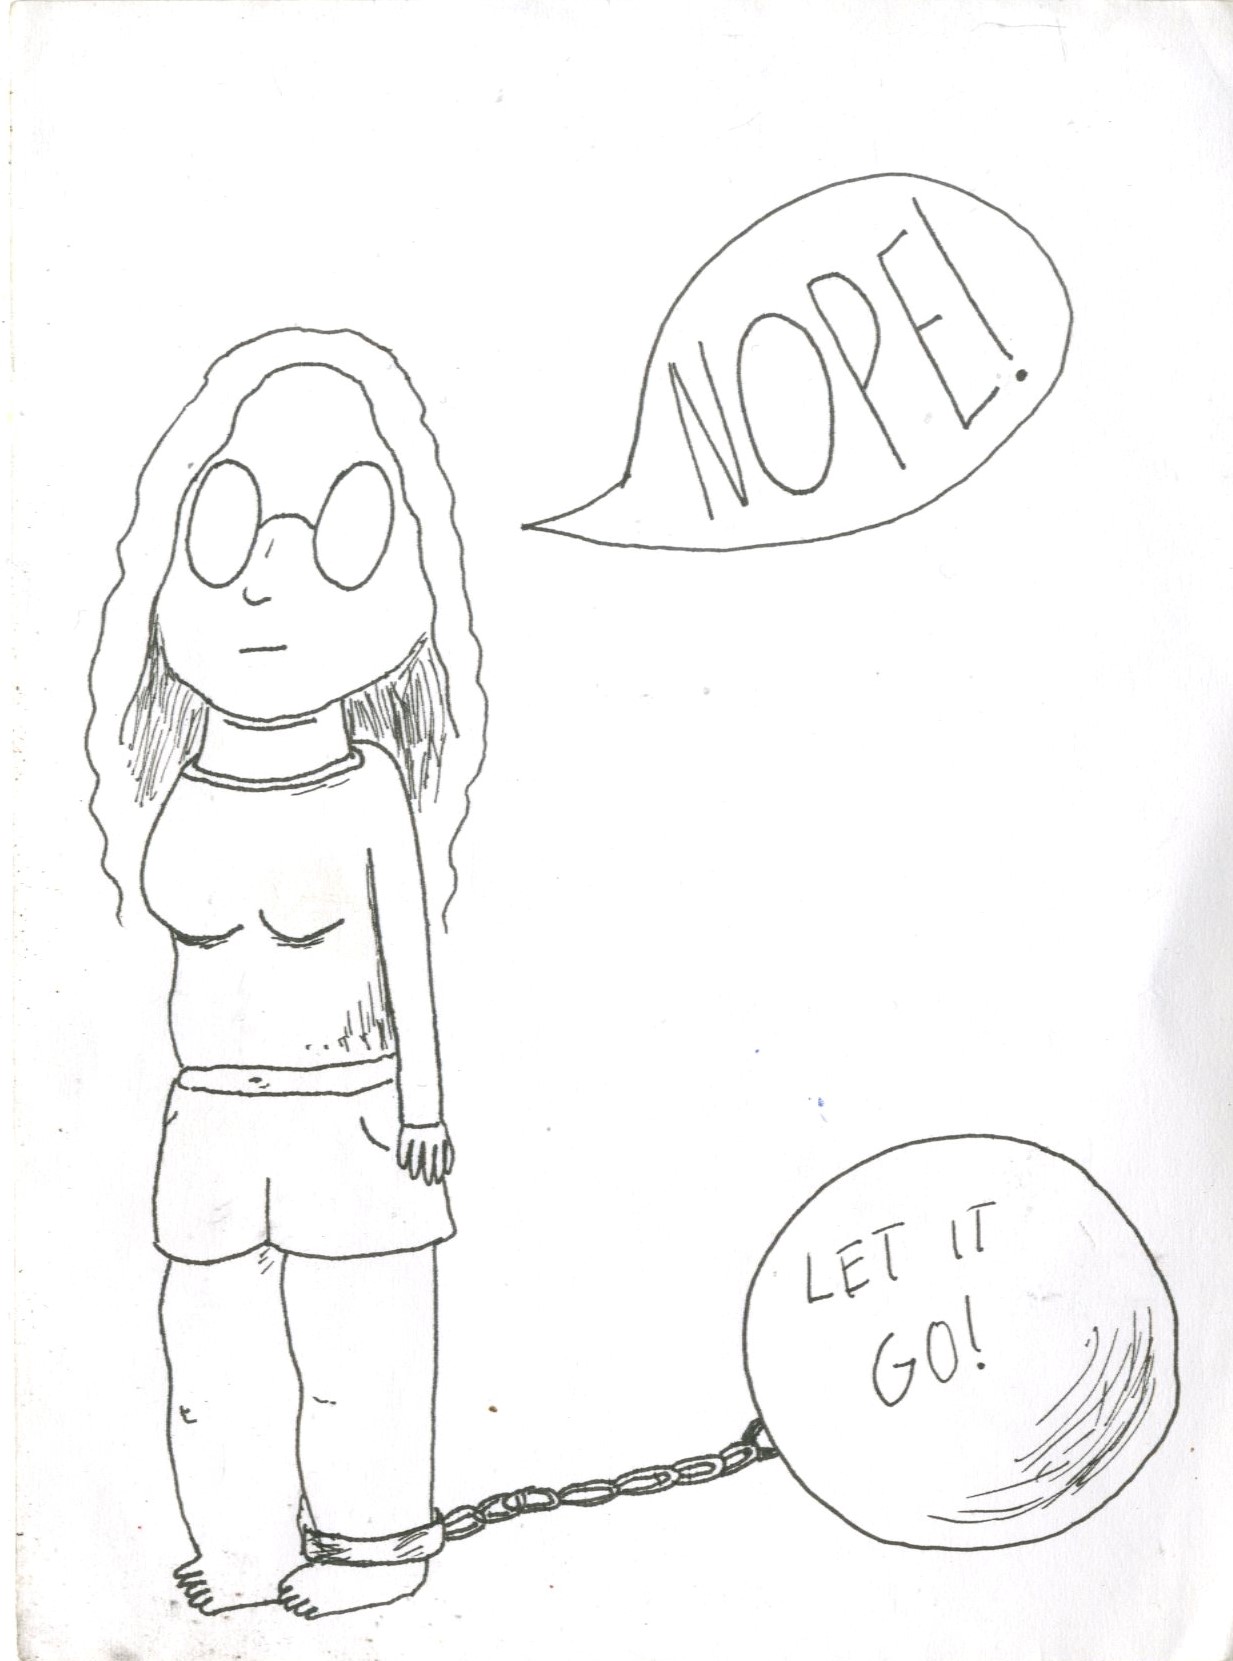 NOPE!
LET IT
GO!